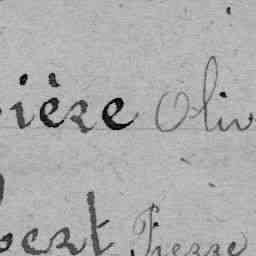 ière Oliv
bert Pierre